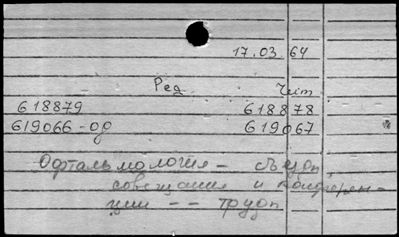 17.03 64
Ред Чит
618879 618878
619066-08 619067
Офтальмология - съезды,
совещания и конферен-
ции -- труды